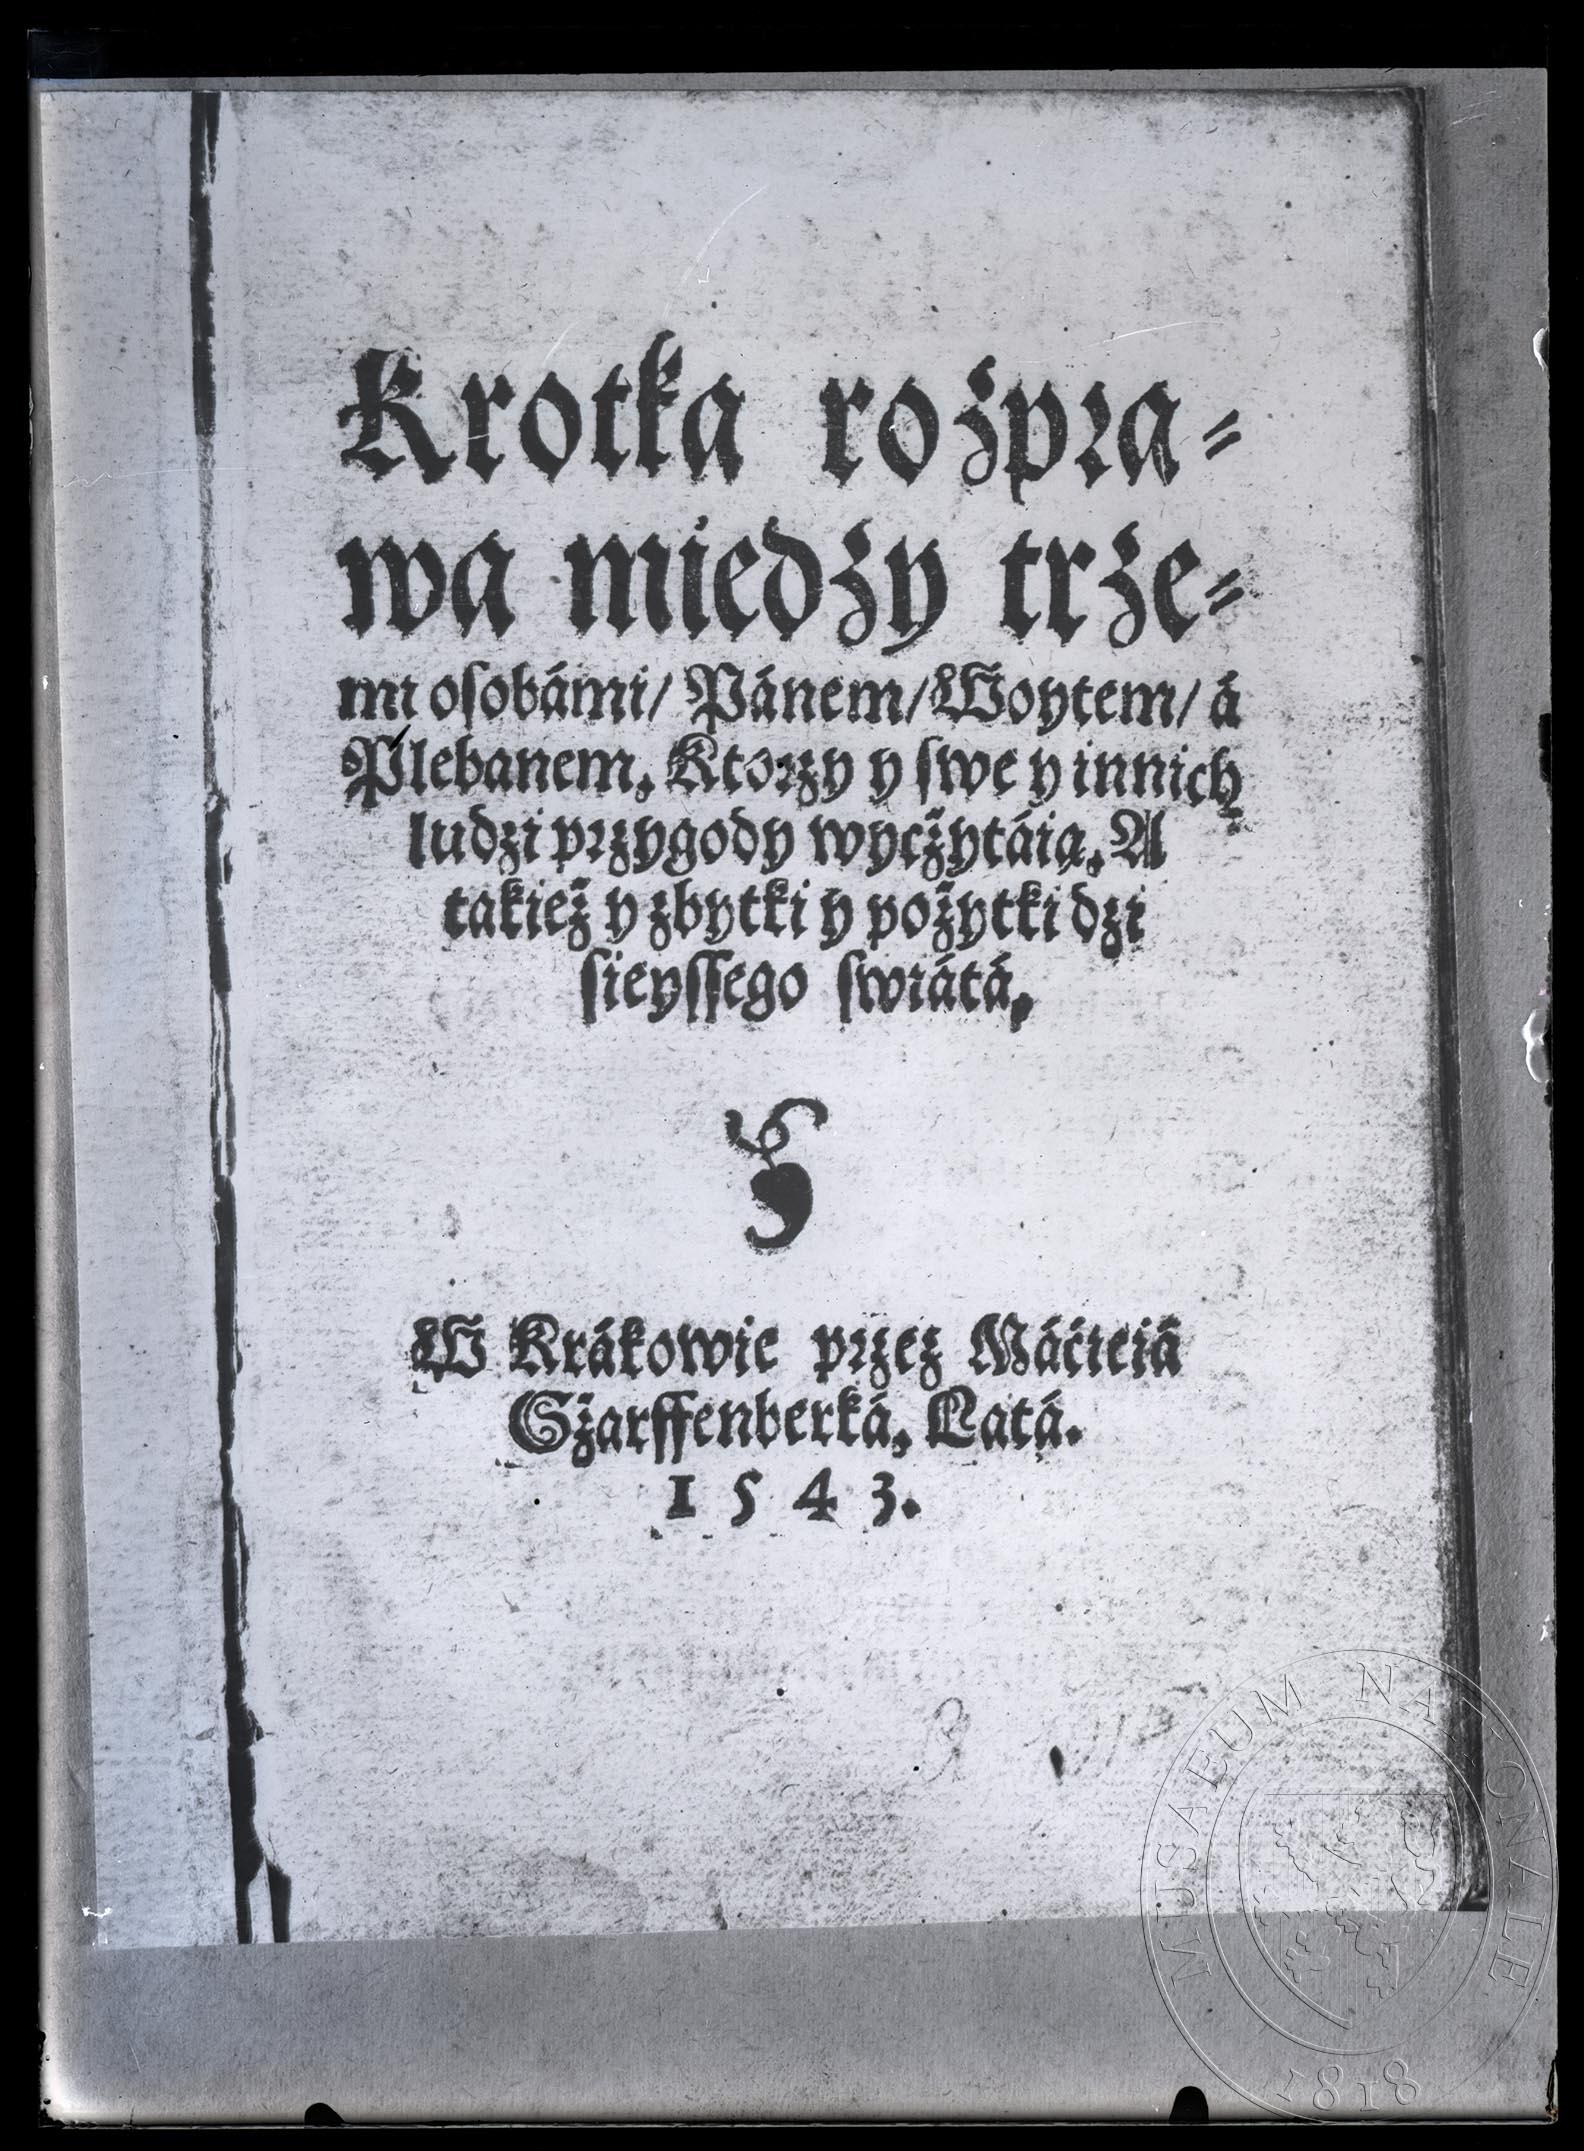 Krotka rożpra⸗
wa miedży trże⸗
mi osobámi/ Pánem/ Woytem/ á
Plebanem, Ktorzy y swe y innich
ludzi przygody wyczżytáią, A
takież y zbytki y pożytki dzi
sieyssego swiátá,
W Krákowie przez Máćieiá
Szarffenberká, Latá.
1543.
MUSAEUM NATIONALE
1818